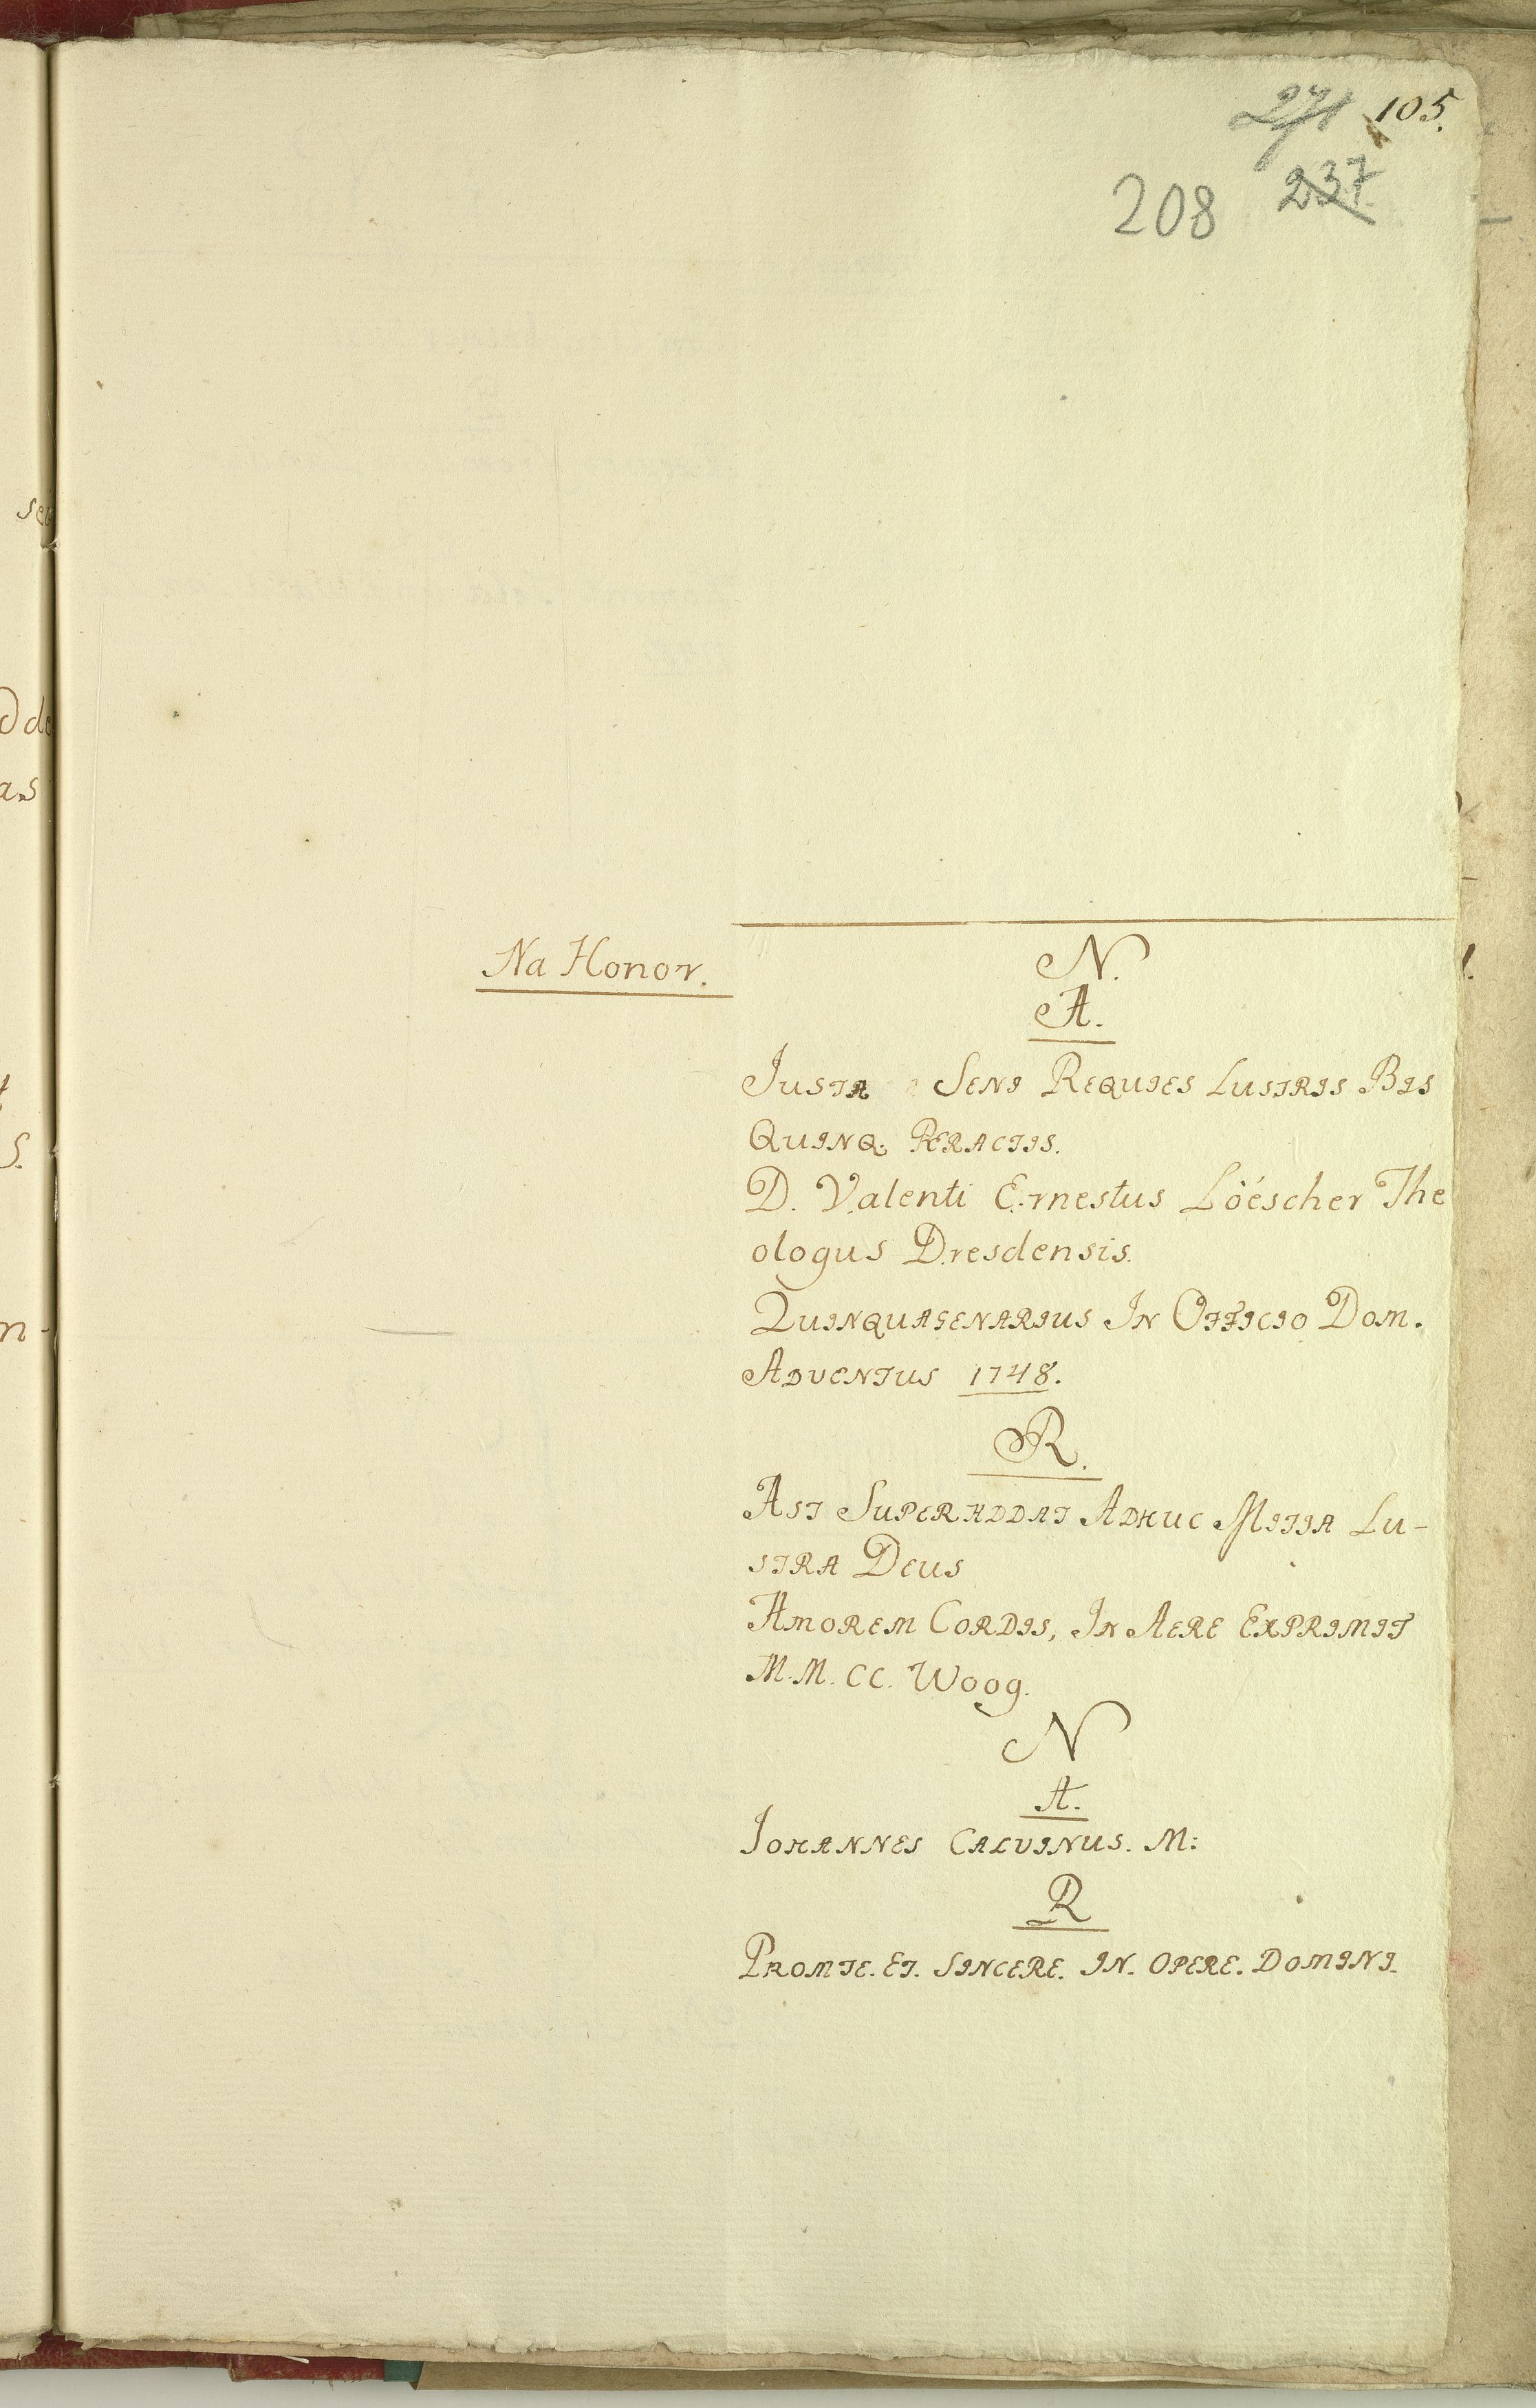 271 105.
208 237
Na Honor.
N.
A.
Iusta Seni Requies Lustris Bis
Quinq. Peractis.
D. Valenti Ernestus Löescher The
ologus Dresdensis.
Quinquagenarius In Officio Dom.
Adventus 1748.
R.
Ast Superaddat Adhuc Mitia Lu-
stra Deus
Amorem Cordis, In Aere Exprimit
M.M. CC. Woog.
N
A.
Iohannes Calvinus. M:
R
Promte. Et. Sincere. In. Opere. Domini.